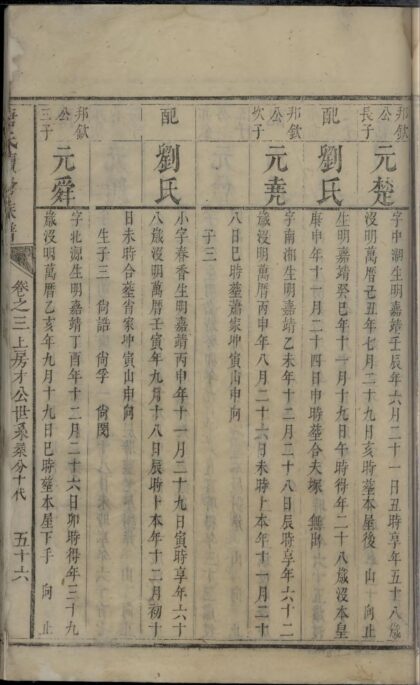 邦欽公長子
元楚
字中湖生明嘉靖壬辰年六月二十一日丑時享年五十八歲
沒明萬曆己丑年七月二十九日亥時塟本屋後 山 向止
配
劉氏
生明嘉靖癸巳年十一月十九日午時得年二十八歲沒本皇
庚申年十一月二十四日申時塟合夫塚 無嗣
邦欽公次子
元堯
字南湖生明嘉靖乙未年十二月二十八日辰時享年六十二
歲沒明萬曆丙申年八月二十六日未時卜本年十一月二十
八日巳時塟蕭家坤寅山申向
子三
配
劉氏
小字春香生明嘉靖丙申年十一月二十九日寅時享年六十
八歲沒明萬曆壬寅年九月十八日辰時卜本年十二月初十
日未時合塟肖家坤寅山申向
生子三 尚誥 尚孚 尚閔
邦欽公三子
元舜
字北源生明嘉靖丁酉年十二月二十六日卯時得年三十九
歲沒明萬曆乙亥年九月十九日巳時塟本屋下手 向止
族譜
卷之三 上房才公世系 第分十代 五十六